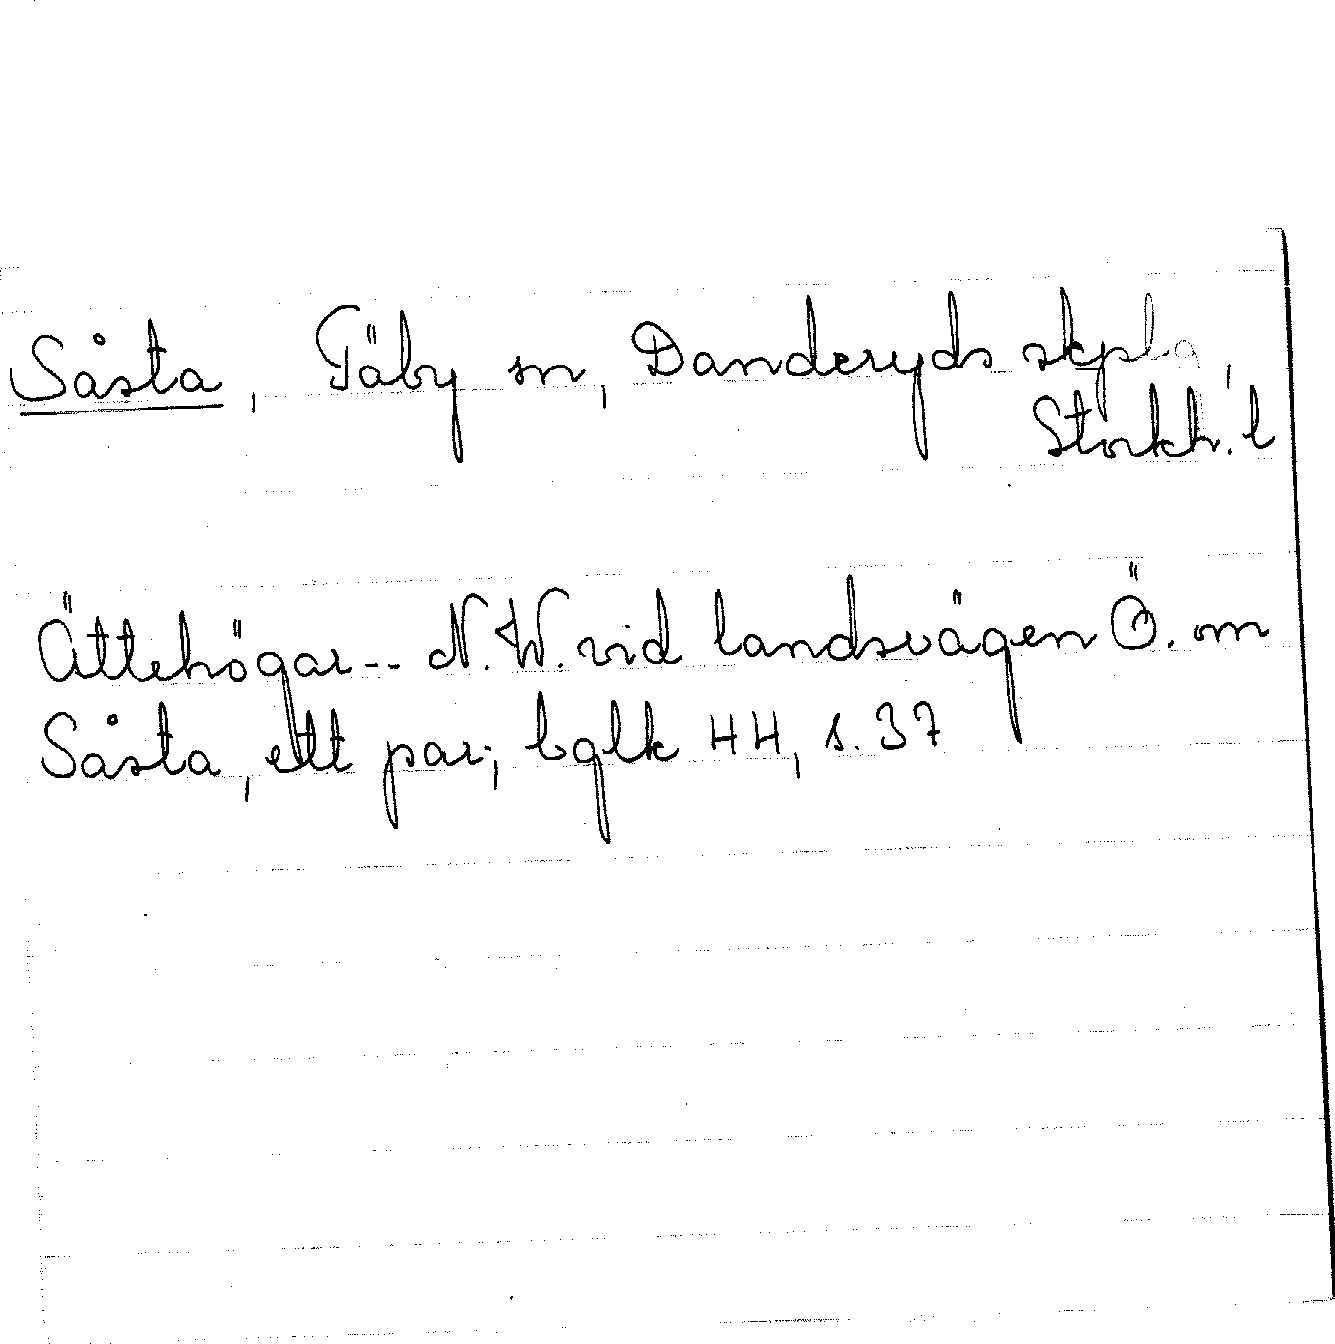 Såsta, Täby sn, Danderyds skpla,
Stockh. l
Ättehögar -- N.W. vid landsvägen Ö. om
Såsta, ett par; bglk HH, s. 37